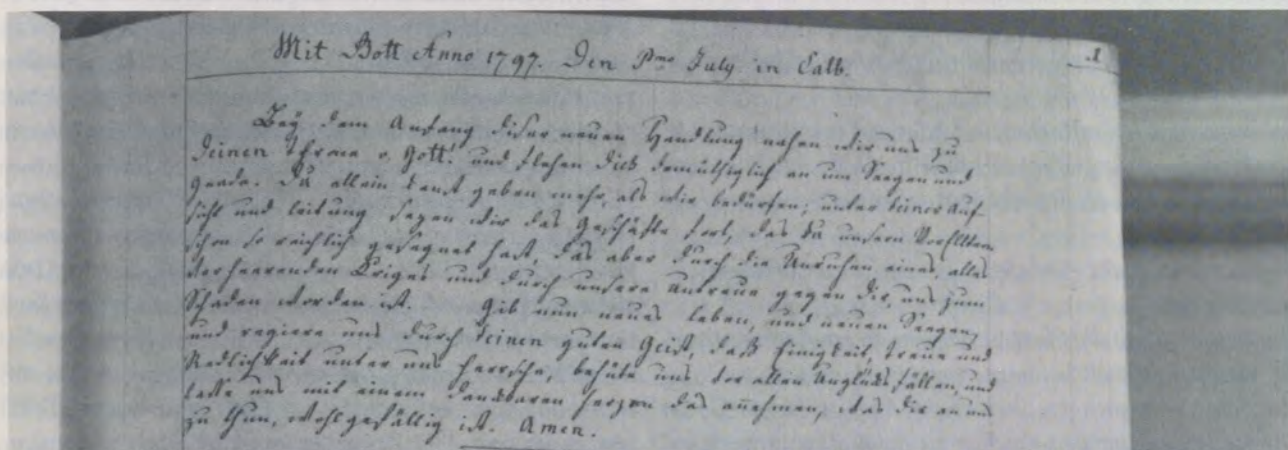 Mit Gott Anno 1797. Den Pmo July in Calb.
1
Bey dem Anfang diser neuen Handlung nahen wir uns zu
Deinen Throne o Gott! und flehen Dich demüthiglich an um Seegen und
Gnade. Du allein kanst geben mehr, als wir bedürfen; unter deiner Auf-
sicht und Leitung sezen wir das Geschäfte fort, das Du unsern Vorältern
schon so reichlich gesegnet hast, das aber durch die Unruhen eines, alles
verheerenden Kriges und durch unsere Untreue gegen Dir, uns zum
Schaden worden ist. Gib nun neues Leben, und neuen Seegen,
und regiere uns durch Deinen guten Geist, daß Einigkeit, Treue und
Redlichkeit unter uns herrsche, behüte uns vor allen Unglüks fällen, und
laße uns mit einem dankbaren Herzen das añehmen, was Dir an uns
zu thun, wohlgefällig ist. Amen.